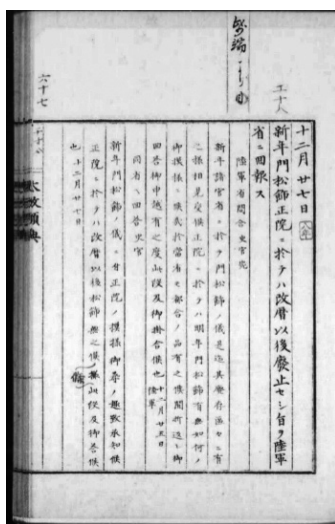 十二月廿七日
新年門松飾正院ニ於テハ改暦以後廃止セシ旨ヲ陸軍
省ニ回報ス
陸軍省問合 史官宛
新年諸官省ニ於テ門松飾ノ儀是迄異
ニ相見更候正院ニ於テハ明年門松飾有無如何ノ
御模様ニ候哉於当省モ都合ノ品有之候間折返シ御
回答御申越有之度此段及御掛合候也 十二月廿五日 陸軍
同省ヘ回答 史官
新年門松飾ノ儀ニ付正院ノ模様御尋ノ趣致承知候
正院ニ於テハ改暦以後松飾無之候此段及御答候
也 十二月廿七日
太政類典
六十七